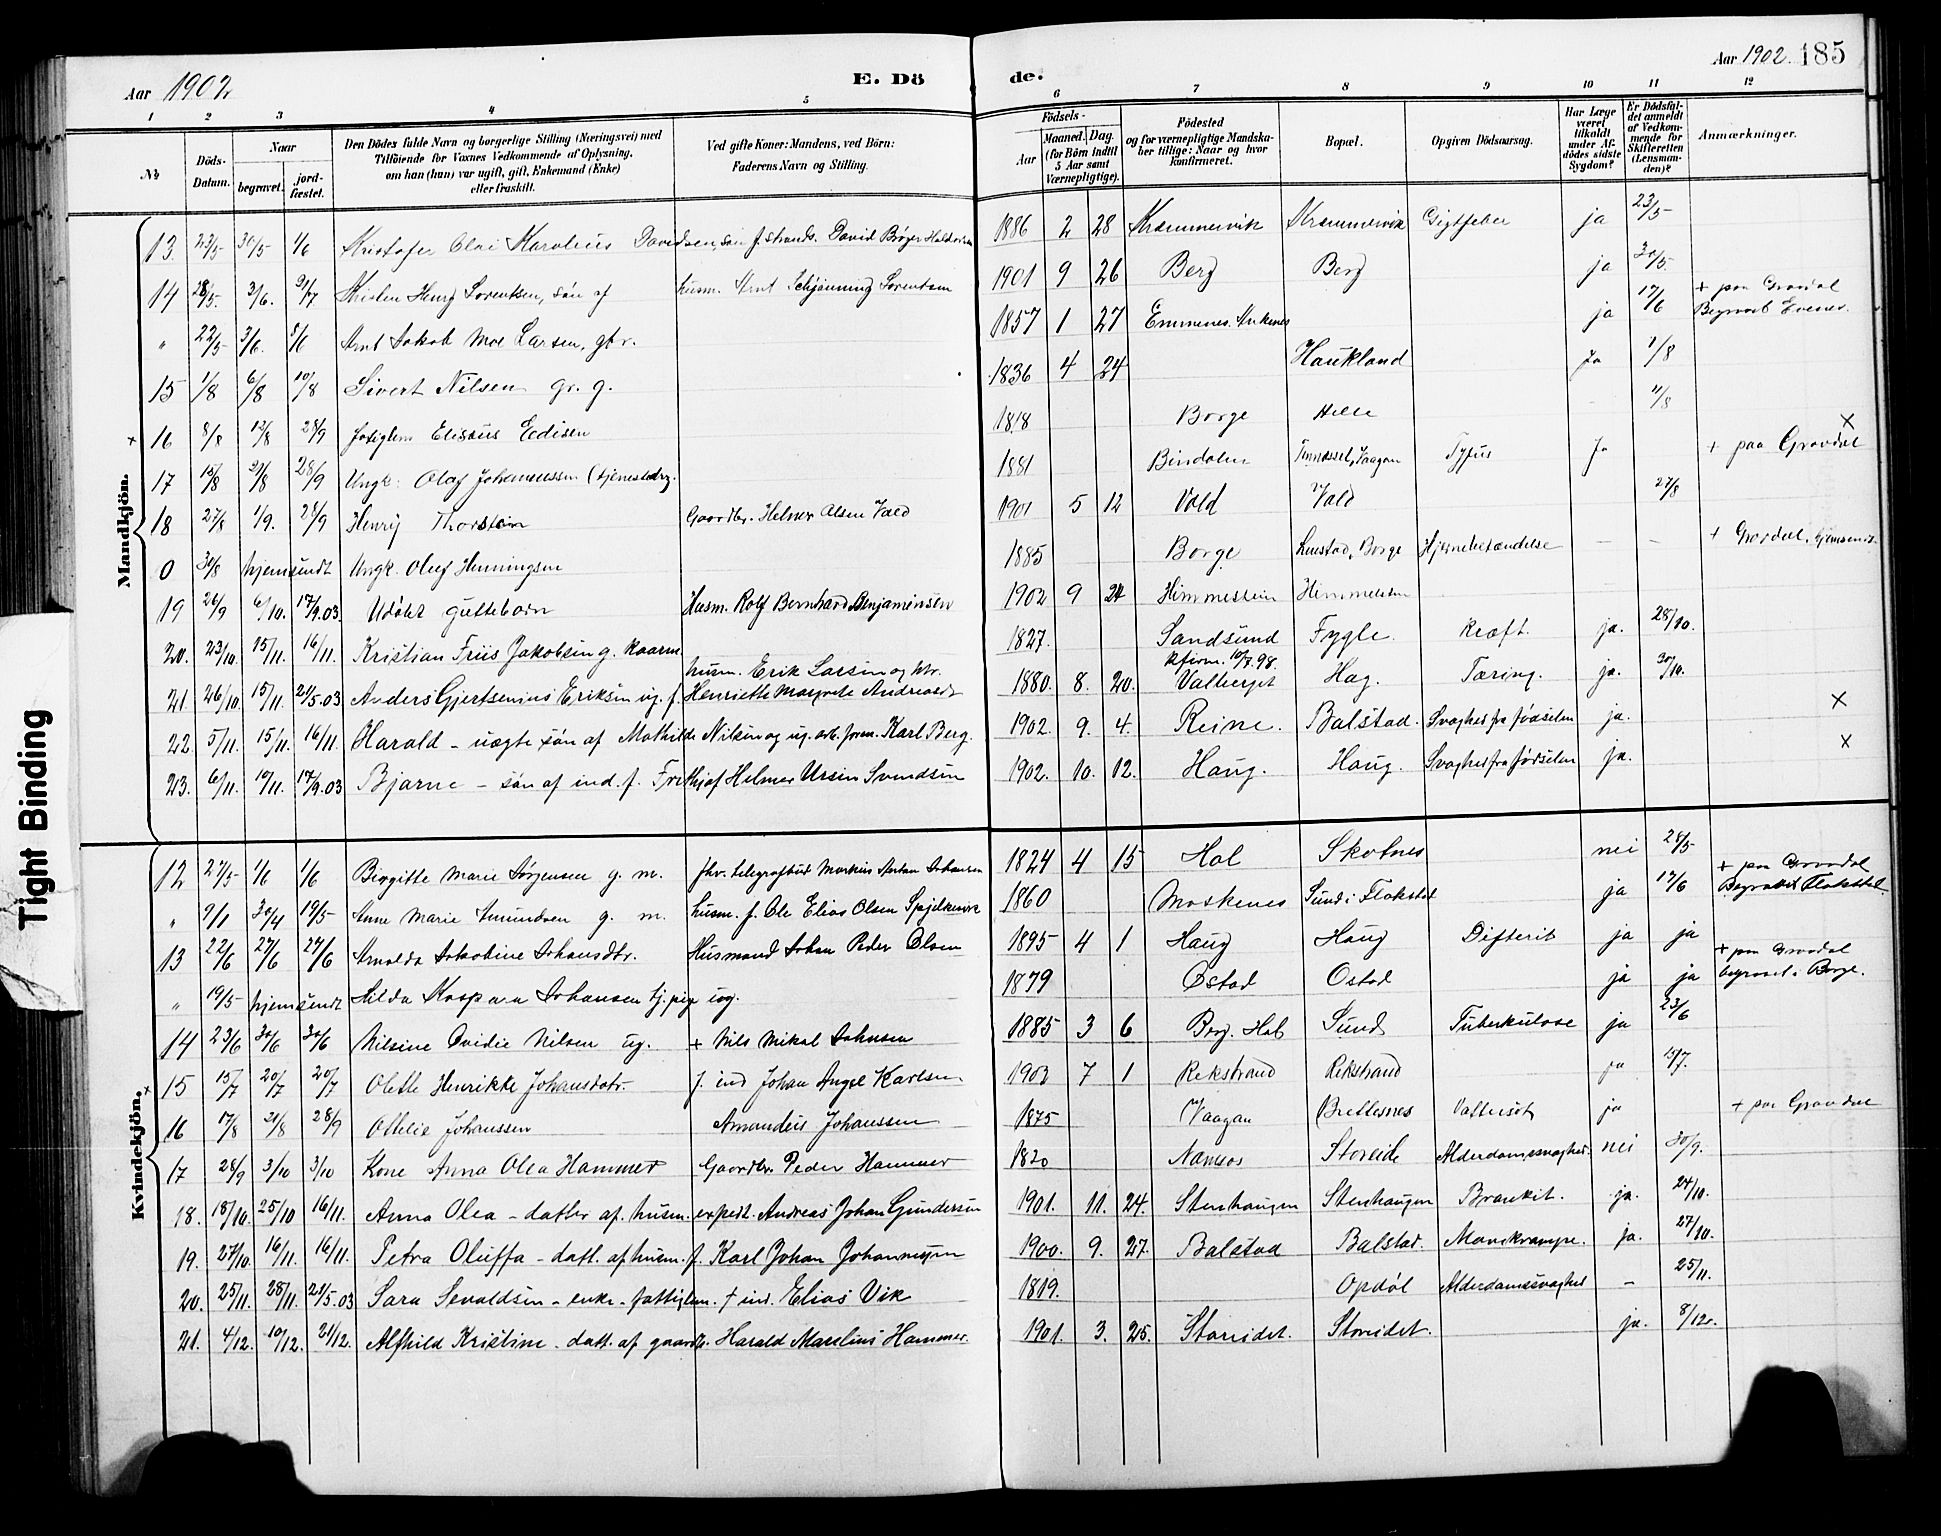 Aar 1902. E. Dö de. Aar 1902. 185
1 2 3 4 5 6 7 8 9 10 11 12
№ Döds-Datum. Naar begravet. jordfæstet. Den Dödes fulde Navn og borgerlige Stilling (Næringsvei) med Tilföiende for Voxnes Vedkommende af Oplysning, om han (hun) var ugift, gift, Enkemand (Enke) eller fraskilt. Ved gifte Koner: Mandens, ved Börn: Faderens Navn og Stilling. Födsels- Aar Maaned. Dag. (for Börn indtil 5 Aar samt Værnepligtige). Födested og for værnepligtige Mandskaber tillige: Naar og hvor konfirmeret. Bopæl. Opgiven Dödsaarsag. Har Læge været tilkaldt under Afdödes sidste Sygdom? Er Dödsfaldet anmeldt af Vedkommende for Skifteretten (Lensmanden)? Anmærkninger.
Mandkjön.
13 23/5 30/5 1/6 Kristofer Olai Karolius Davidsen, søn f. strands. David Brøger 1886 2 28 Kræmmervik Kræmmervik Gigtfeber ja 23/5
14 28/5. 3/6. Kristen Henry Lorentsen, søn af husm. Arnt Schjønning Lorentsen 1901 9 26 Berg Berg ja 30/5.
" 22/5 3/6. 8/6 Arnt Jakob Moe Larsen, gbr. 1857 1 27 Emmenes. Ankenes ja 17/6 + paa Gravdal Begravet Evenes.
15 1/8 6/8 10/8 Sivert Nilsen gr. g. 1836 4 24 Haukland Ja 1/8
+ 16 8/8 13/8 28/9 fattiglem Elisæus Edisen 1818 Borge Helle 11/8 x
17 15/8 21/8 28/9 Ungk. Olaf Johannessen (tjenestedrg. 1881 Bindalen Vaagan Tyfus Ja + paa Gravdal
18 27/8 1/9. 28/9 Henry Thorstein Gaardbr. Helmer Olsen Vold 1901 5 12 Vold Vold 27/8
0 30/8 hjemsendt Ungk. Oluf Henningsen 1885 Borge Borge Hjernebetændelse — — + Gravdal, hjemsendt.
19 26/9 6/10. 17/9.03. Udøbt guttebarn Husm. Rolf Bernhard Benjaminsen 1902 9 24 Himmelstein Himmelstein
20. 23/10. 15/11. 16/11. Kristian Friis Jakobsen g. kaarm. 1827. Sandsund Fygle. Kræft. ja. 28/10.
21. 26/10. 15/11. 21/5.03 Anders Gjertsenius Eriksen ug. f. husm. Erik Larsen og htr. Henriette Margrete Andreasdt 1880. 8. 20. kfirm. 10/7.98. Valberget Hag. Tæring. ja. 30/10.
22. 5/11. 15/11. 16/11. Harald – uægte søn af Mathilde Nilsen og ug. arb. form. Karl Berg. 1902. 9. 4. Reine. Balstad. Svaghet fra fødselen ja. x
23. 6/11. 10/11. 17/9.03 Bjarne – søn af ind. f. Frithjof Helmer Ursin Svendsen 1902. 10. 12. Haug. Haug. Svaghet fra fødselen ja. x
Kvindekjön.
12 27/5 1/6 1/6 Birgitte Marie Sørjensen g. m. fhv. telegrafbud Markus Johansen 1824 4 15 Hol Skotnes nei 28/5
" 9/1 30/4 19/5- Anne Marie Amundsen g. m. husm. f. Ole Elias Olsen Spjelkevik 1860 Moskenes Sund i Flakstad ja 17/6 + paa Gravdal Begravet Flakstad
13 22/6 27/6 27/6 Arnolda Jakobine Johansdtr. Husmand Johan Peder Olsen 1895 4 1 Haug Haug Difterit ja ja
" 19/5- hjemsendt Hilda Kaspara Johansen tj. pige ug. 1879 Østad Ostad ja ja + paa Gravdal begravet i Borge.
14 23/6 30/6 30/6 Nilsine Ovidie Nilsen ug. + Nils Mikal Johnsen 1885 3 6 Berg. Hol Sund Tuberkulose ja 23/6
x 15 15/7 20/7 20/7 Olette Henrikke Johansdatr. f. ind Johan Angel Karlsen 1902 7 1 Rekstrand Rekstrand ja 15/7.
16 17/8 21/8 28/9 Ottelie Johanssen Amandus Johanssen 1875 Vaagan Brettesnes Vattersot ja + paa Gravdal
17 28/9 3/10 3/10 Kone Anna Olea Hammer Gaardbr. Peder Hammer 1820 Namsos Storeide Alderdomssvaghed nei 30/9.
18. 18/10. 25/10 16/11. Anna Olea – datter af. husm. expedt. Andreas Johan Gundersen 1901. 11. 24. Stenhaugen Stenhaugen Bronkit. ja. 24/10.
19. 27/10. 16/11. 16/11. Petra Oluffa – datt. af husm. f. Karl Johan Johannesen 1900. 9. 27. Balstad Balstad. Mavekrampe. ja. 27/10.
20. 25/11. 28/11. 21/5.03 Sara Sevaldsen – enke – fattiglem. f ind. Elias Vik 1819. Opdøl Alderdomssvaghet – 25/11.
21. 4/12. 10/12. 21/12. Alfhild Kristine – datt. af gaardb. Harald Marelius Hammer. 1901. 3. 25. Storeidet. Storeidet. ja. 8/12.
Tight Binding